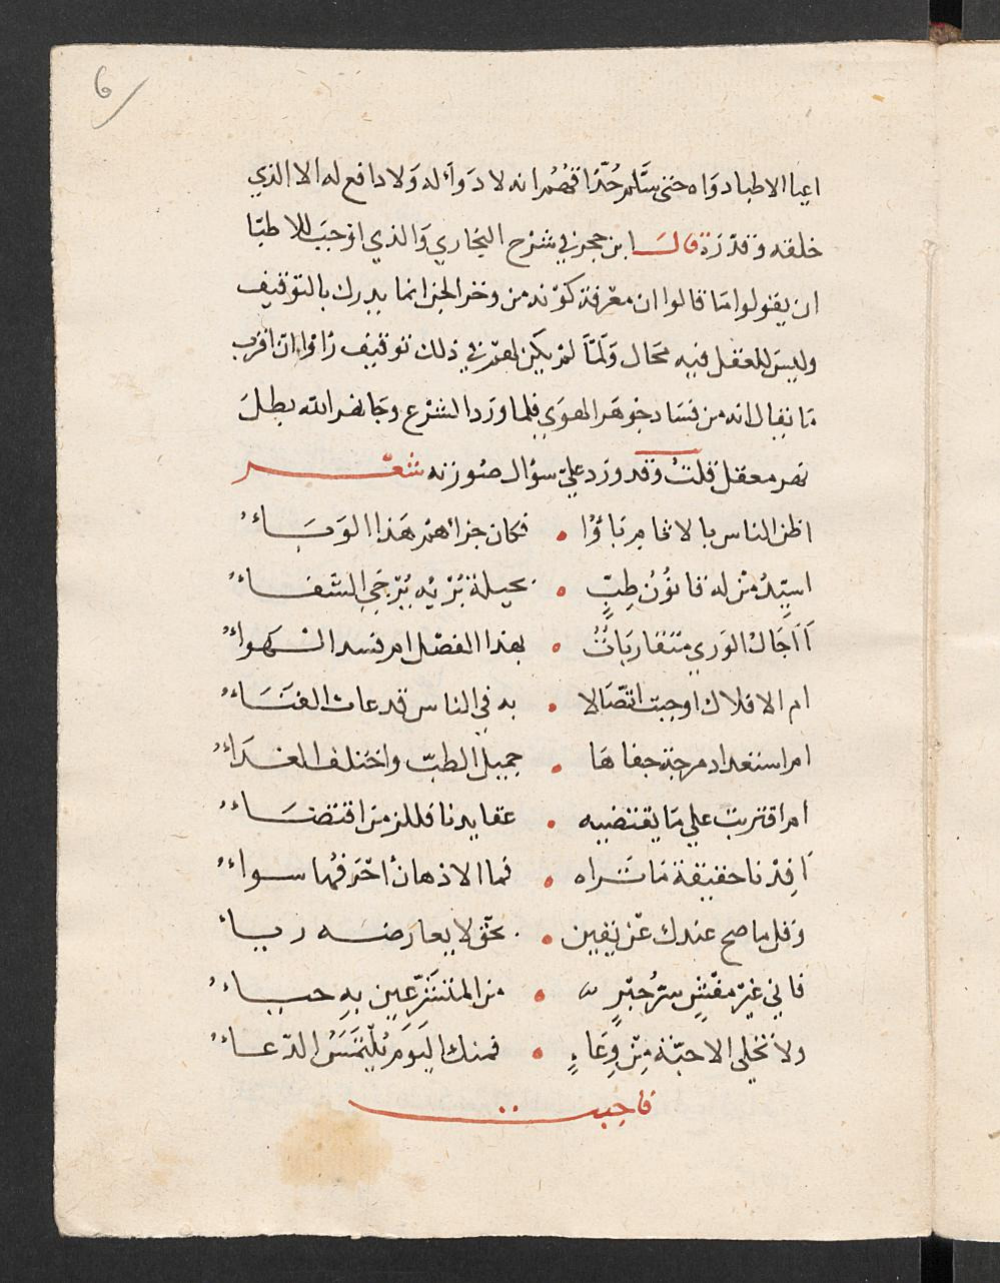 6
اعيا الاطبا دوَاه حتى سَلم حُذّاقهُم انه لا دَوآء له وَلا دافع له الا الذي
خلقه وقدّرَهُ قالَ ابن حجر في شرْح البخاري وَالذي اوْجبَ للاطبّا
ان يقولوا مَا قالوا ان معْرفة كوْنه من وخز الجن انما يدرك بالتوْقيف
وليسَ للعقل فيه مَحَال وَلمّا لمْ يكن لهم في ذلك توقيف رَاوْا ان اقرب
مَا يقال انه من فسَاد جوهَر الهوَي فلما ورَد الشرْع وجَا نهر الله بطلَ
نهر معقل قلتُ وقد ورَد عليّ سؤال صُورَته شعْر
اظن الناس بالاثام بَاؤُا • فكان جزاؤهمْ هَذا الوَبَاءُ
اسيّدُ منْ له قانوُنُ طِبٍّ • بحيلة بُرْئِه يُرْجَي الشفاءُ
أَاجَالُ الوَري متقاربَاتٌ • بهذا الفصْل ام فسد الهَواءُ
ام الافلاك اوجبت اتّصَالا • به في الناس قد عاث الفنَاءُ
ام استعداد مرجة جفاهَا • جميل الطبّ واختلف الغذَاءُ
ام اقتربت علي مَا يقتضيه • عقايدنا فللزمن اقتضاءُ
أَفِدْنا حقيقة مَا تَراه • فما الاذهانُ احْرَفُها سواءُ
وَقل ما صح عندك عَن يقين • بحق لا يعارضه رياءُ
فاني غيْر مفْشٍ سِرَّ حبْرٍ • من المتشَرّعين بهِ حباءُ
ولا تخلى الاحبّة مِنْ دِعَاءٍ • فمنك اليَوْمَ يُلتمَسُ الدّعَاءُ
فاجبت